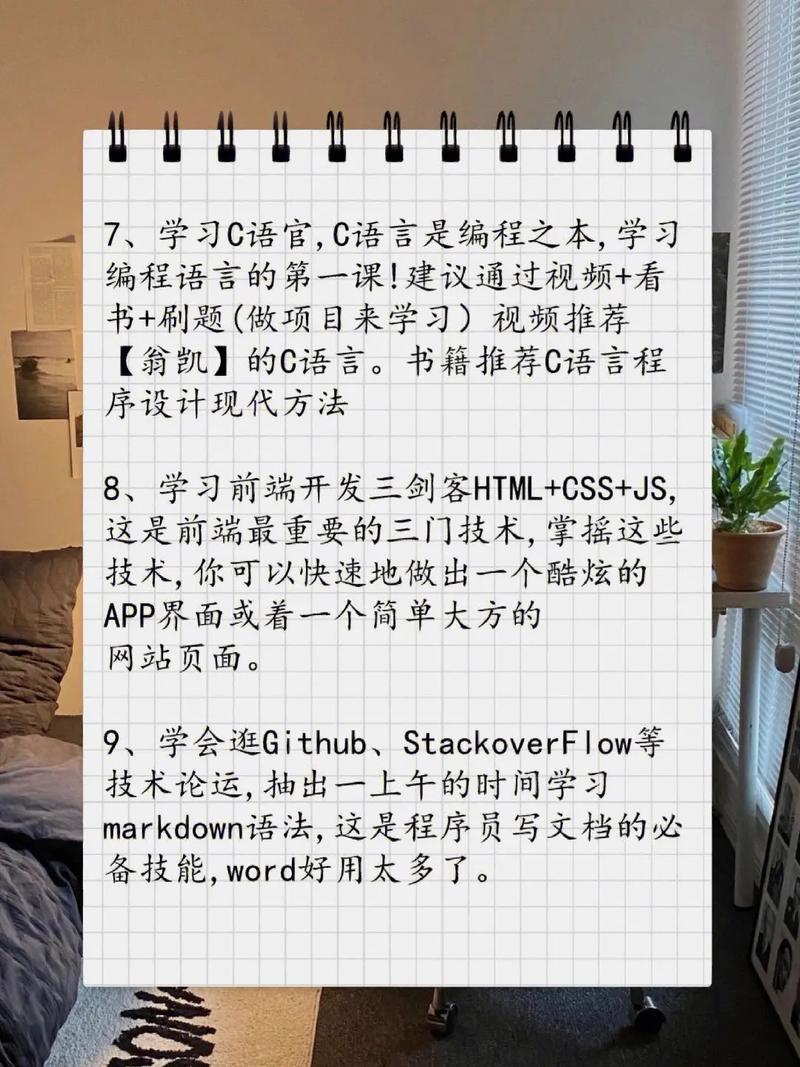 7、学习C语官,C语言是编程之本,学习
编程语言的第一课!建议通过视频+看
书+刷题(做项目来学习）视频推荐
【翁凯】的C语言。书籍推荐C语言程
序设计现代方法
8、学习前端开发三剑客HTML+CSS+JS,
这是前端最重要的三门技术,掌摇这些
技术,你可以快速地做出一个酷炫的
APP界面或着一个简单大方的
网站页面。
9、学会逛Github、StackoverFlow等
技术论运,抽出一上午的时间学习
markdown语法,这是程序员写文档的必
备技能,word好用太多了。